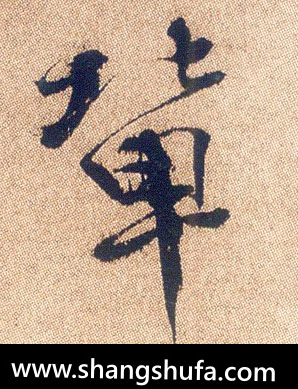 軰
www.shangshufa.com